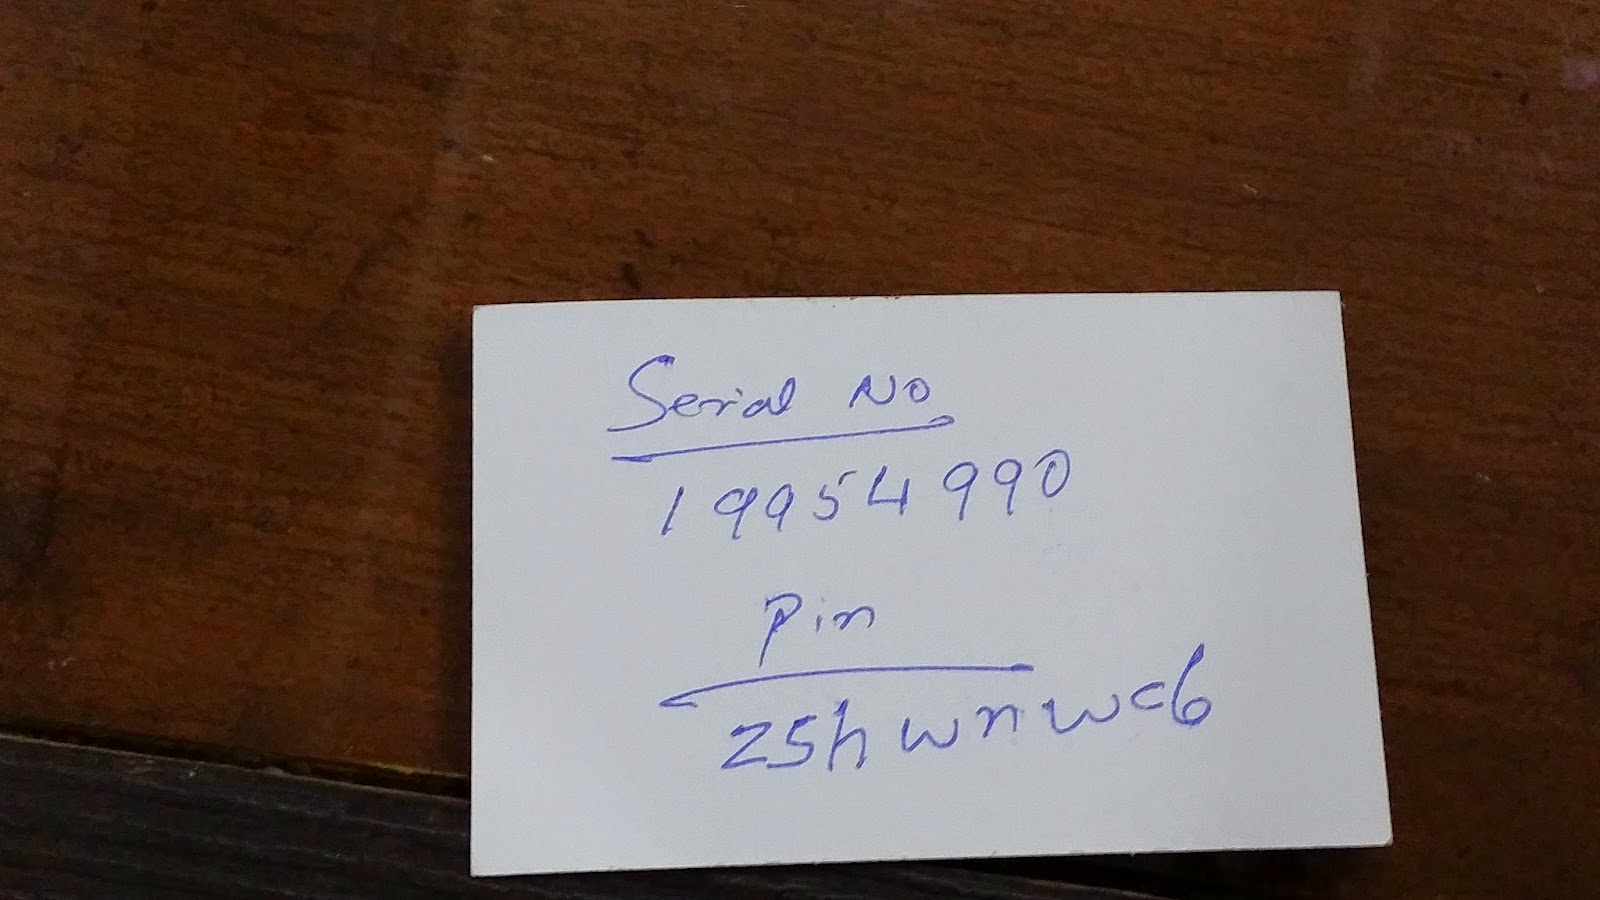 Serial No
19954990
Pin
25hwnwc6